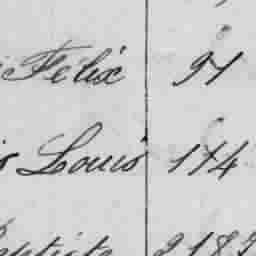 Félix 91
Louis 174
Baptiste 218